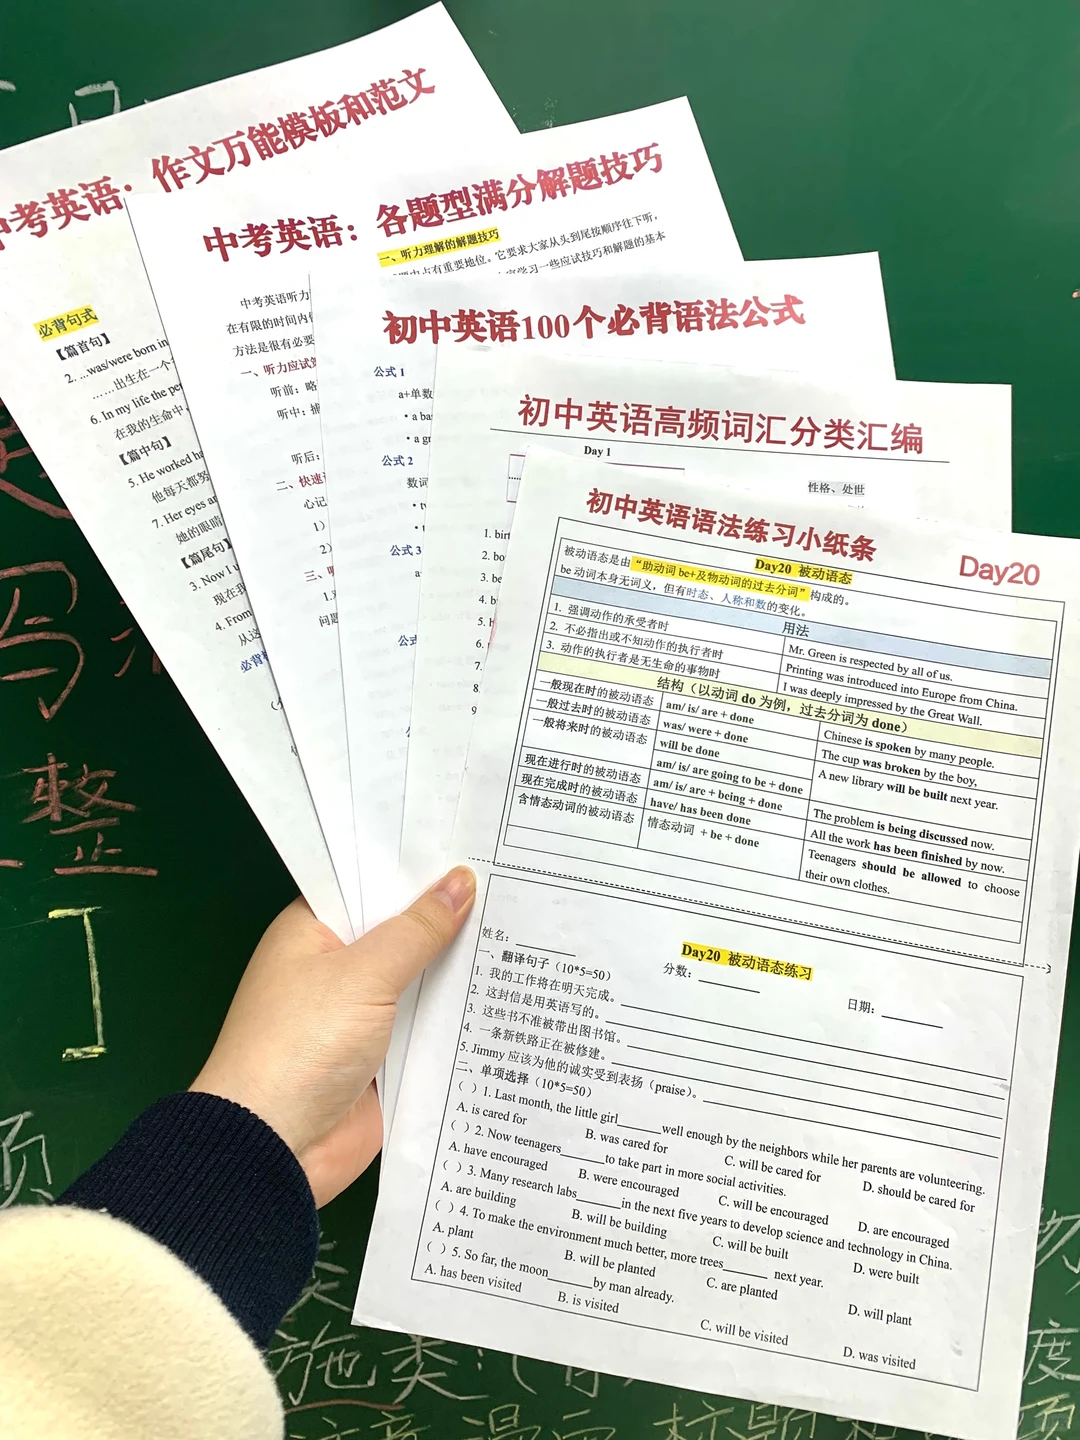 中考英语：作文万能模板和范文
必背句式
【篇首句】
2. ...was/were born in
……出生在一个
6. In my life the pe
在我的生命中，
【篇中句】
5. He worked ha
他每天都努
7. Her eyes ar
她的眼睛
【篇尾句】
3. Now I
现在我
4. From
从这
必背
中考英语：各题型满分解题技巧
一、听力理解的解题技巧
中占有重要地位。它要求大家从头到尾按顺序往下听，
学习一些应试技巧和解题的基本
中考英语听力
在有限的时间内
方法是很有必要
一、听力应试
听前：略
听中：捕
听后：
二、快速
心记
1）
2）
三、听
1.
问题
初中英语100个必背语法公式
公式 1
a+单数
• a ba
• a gr
公式 2
数词
• tw
• t
公式 3
a
公式
初中英语高频词汇分类汇编
Day 1
性格、处世
1. birt
2. bo
3. be
4. b
5. b
6.
7.
8.
9
初中英语语法练习小纸条
Day20
Day20 被动语态
被动语态是由“助动词 be+及物动词的过去分词”构成的。
be 动词本身无词义，但有时态、人称和数的变化。
用法
1. 强调动作的承受者时 Mr. Green is respected by all of us.
2. 不必指出或不知动作的执行者时 Printing was introduced into Europe from China.
3. 动作的执行者是无生命的事物时 I was deeply impressed by the Great Wall.
结构（以动词 do 为例，过去分词为 done）
一般现在时的被动语态 am/ is/ are + done Chinese is spoken by many people.
一般过去时的被动语态 was/ were + done The cup was broken by the boy,
一般将来时的被动语态 will be done A new library will be built next year.
am/ is/ are going to be + done
现在进行时的被动语态 am/ is/ are + being + done The problem is being discussed now.
现在完成时的被动语态 have/ has been done All the work has been finished by now.
含情态动词的被动语态 情态动词 + be + done Teenagers should be allowed to choose
their own clothes.
Day20 被动语态练习
姓名：________ 分数：________ 日期：________
一、翻译句子（10*5=50）
1. 我的工作将在明天完成。
2. 这封信是用英语写的。
3. 这些书不准被带出图书馆。
4. 一条新铁路正在被修建。
5. Jimmy 应该为他的诚实受到表扬（praise）。
二、单项选择（10*5=50）
（ ）1. Last month, the little girl______well enough by the neighbors while her parents are volunteering.
A. is cared for B. was cared for C. will be cared for D. should be cared for
（ ）2. Now teenagers______to take part in more social activities.
A. have encouraged B. were encouraged C. will be encouraged D. are encouraged
（ ）3. Many research labs______in the next five years to develop science and technology in China.
A. are building B. will be building C. will be built D. were built
（ ）4. To make the environment much better, more trees______ next year.
A. plant B. will be planted C. are planted D. will plant
（ ）5. So far, the moon______by man already.
A. has been visited B. is visited C. will be visited D. was visited
写
整
类
施 类：
度